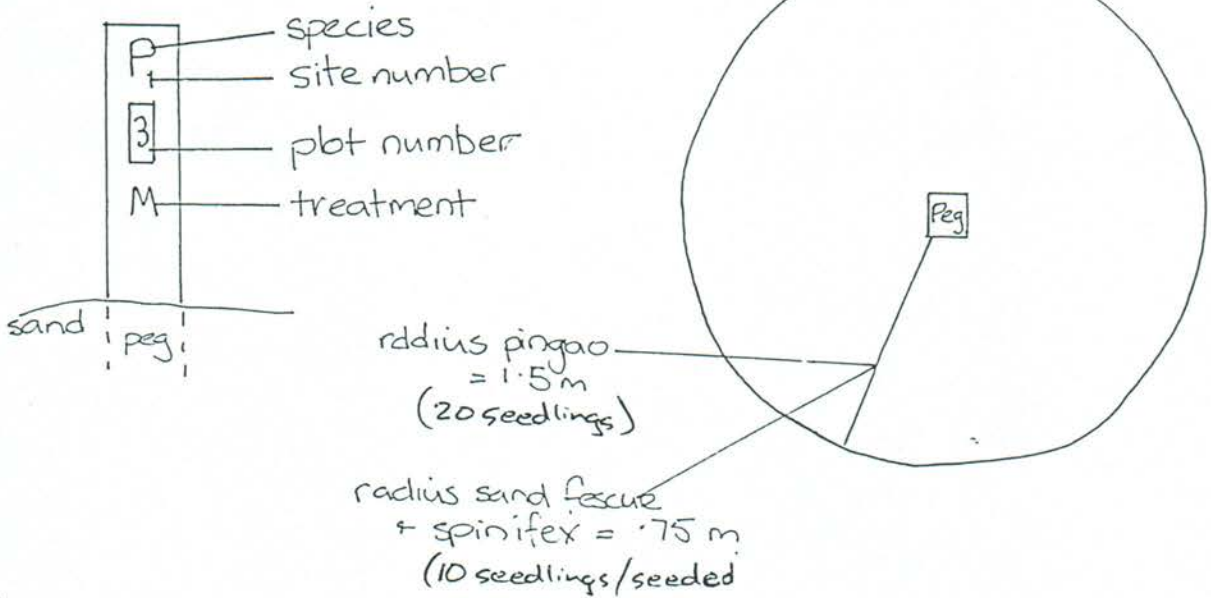 P
species
1
site number
3
plot number
M
treatment
sand
peg
Peg
raddius pingao
= 1.5 m
(20 seedlings)
radius sand fescue
+ spinifex = .75 m
(10 seedlings/seeded